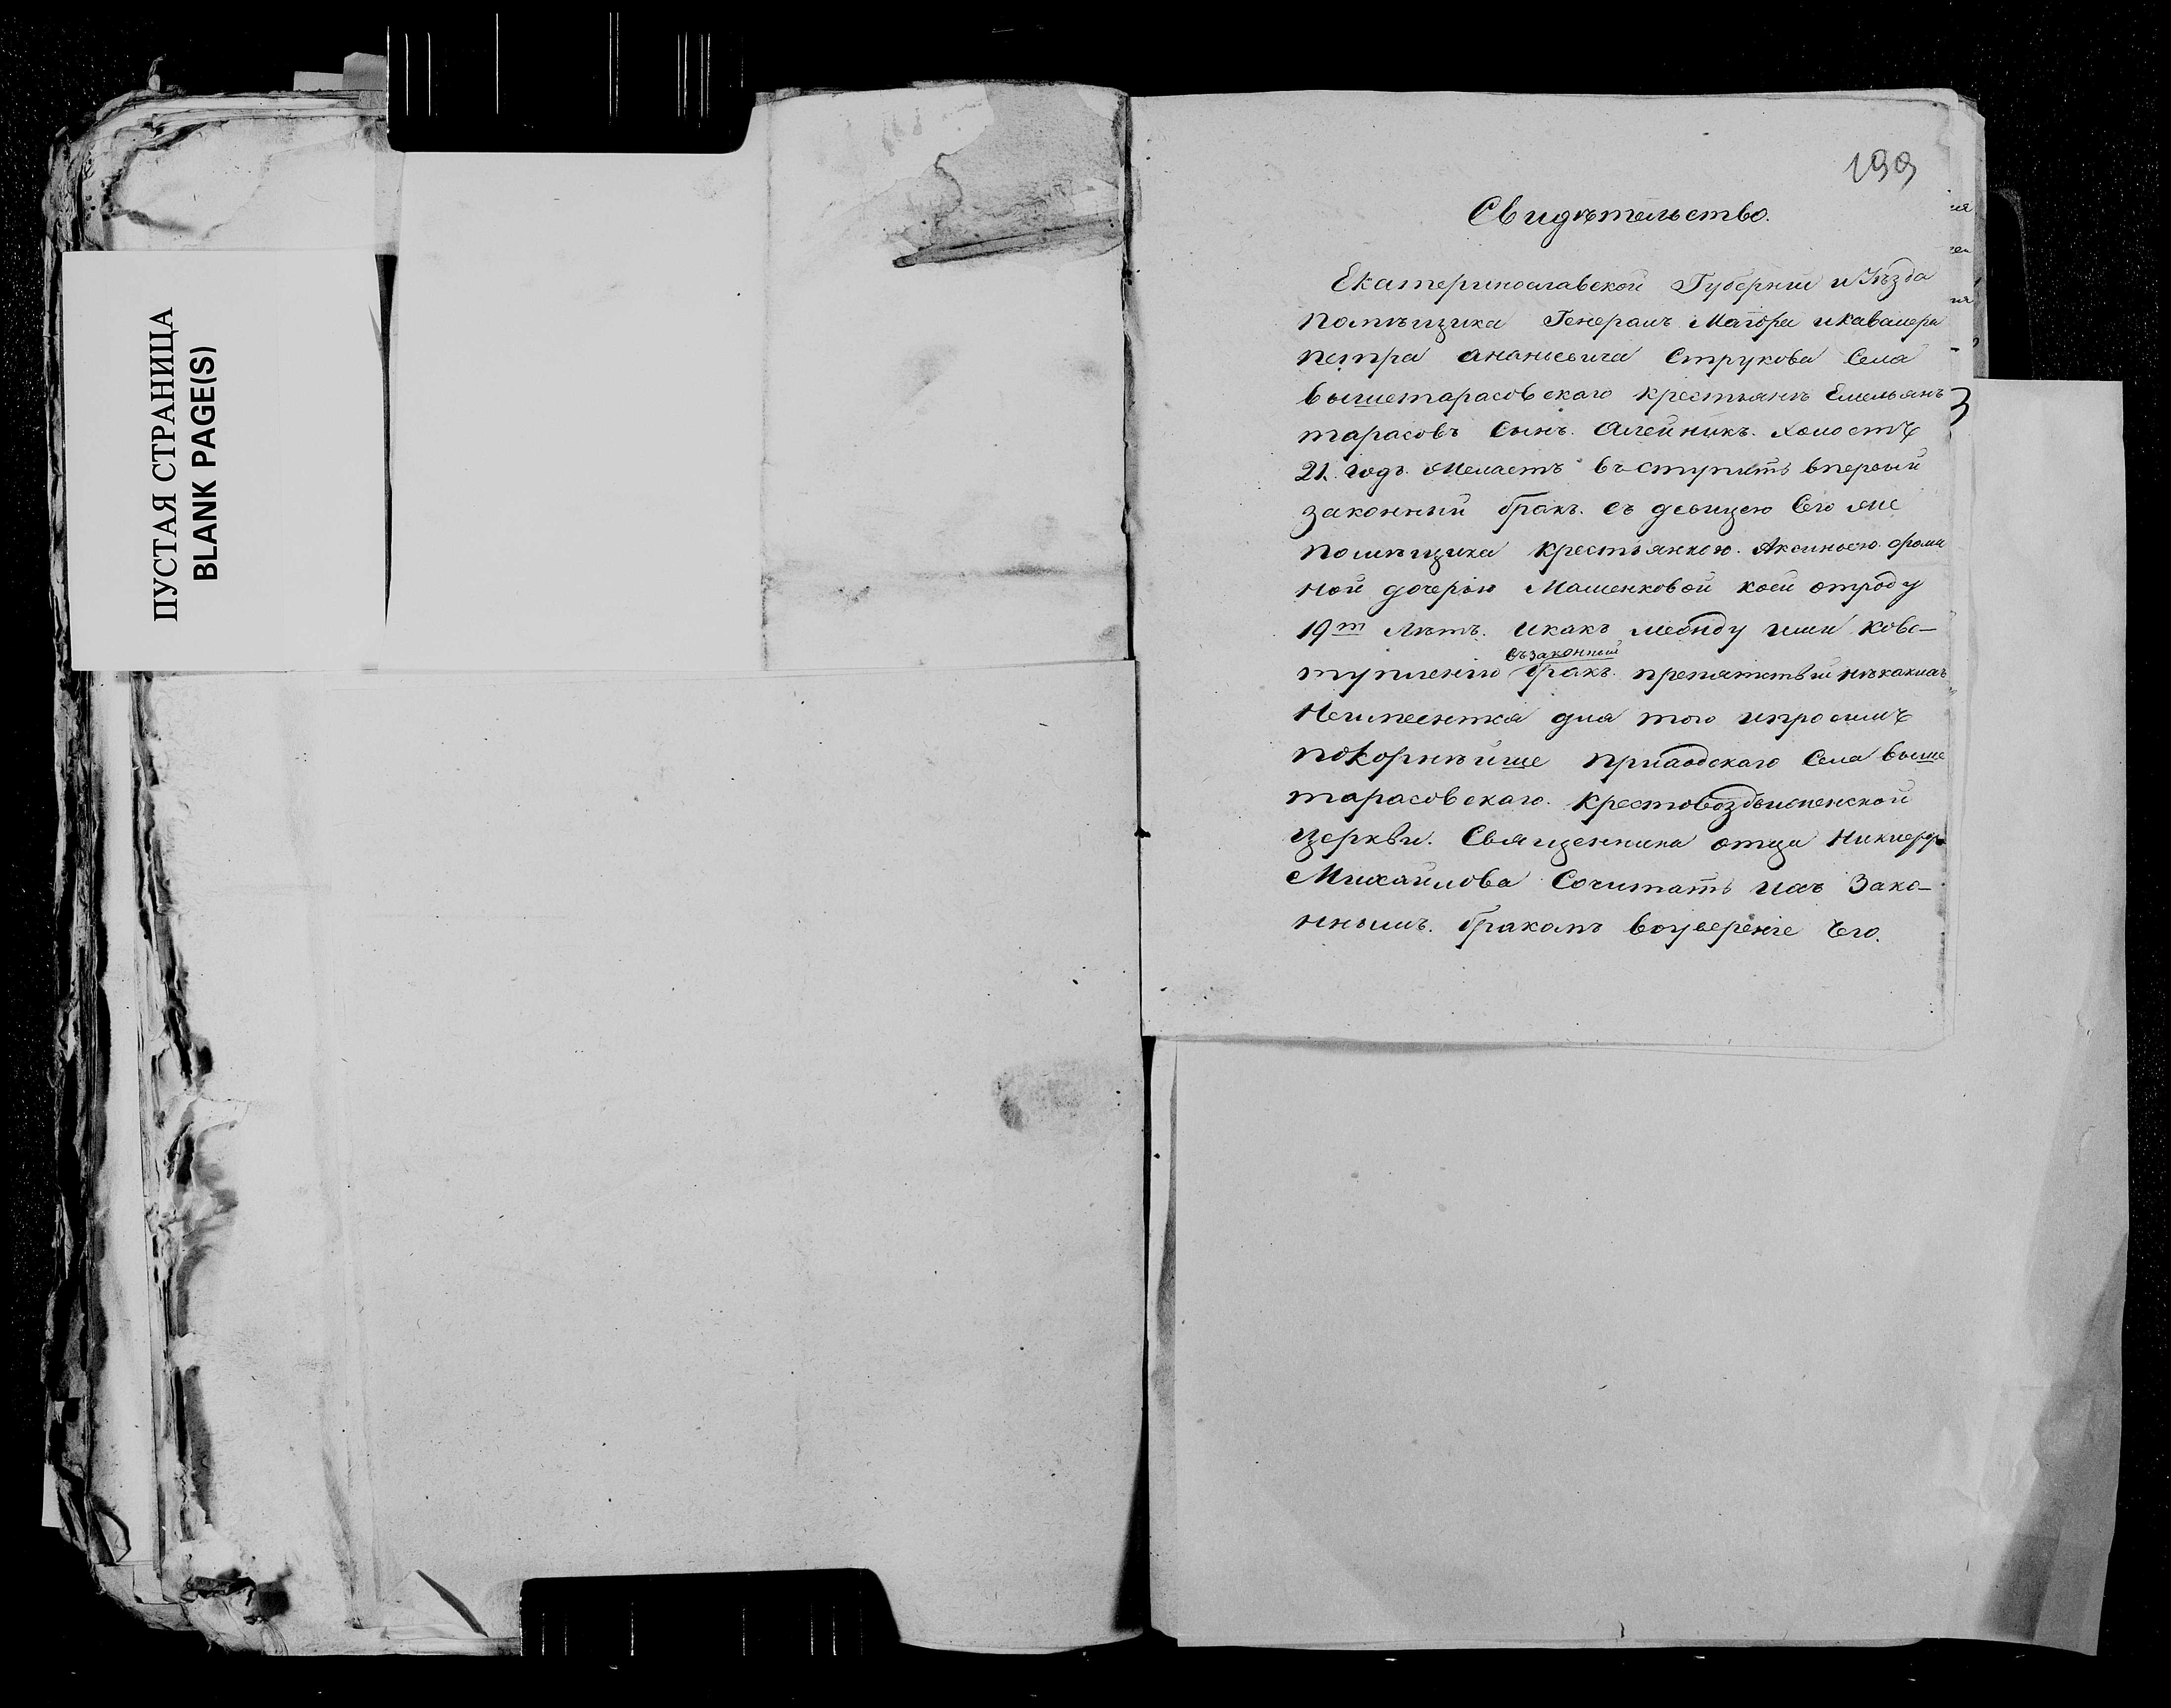 ПУСТАЯ СТРАНИЦА
BLANK PAGE(S)
199
Свидѣтельство.
Екатеринославской Губернии и Уѣзда
помѣщика Генералъ Маіора и кавалера
петра ананьевича Струкова Села
вышетарасовскаго крестьянъ Емельянъ
тарасовъ Сынъ. Олейникъ. холостъ
21. годъ. Желаетъ въступить впервый
законный бракъ. съ девицею Его же
помѣщика крестьянкою. Аксиньею.
ной дочерью Машенковой коей отроду
19т Лѣтъ. икакъ между ими ковс-
взаконный
туплению бракъ. препятствий нѣкакихъ
Неимеентся для того ипросимъ
покорнѣйше приходскаго Села выше
тарасовскаго. крестовоздвиженской
церкви. Священника отца
Михайлова Сочитать ихъ Зако-
ннымъ. бракомъ воуверение Его.